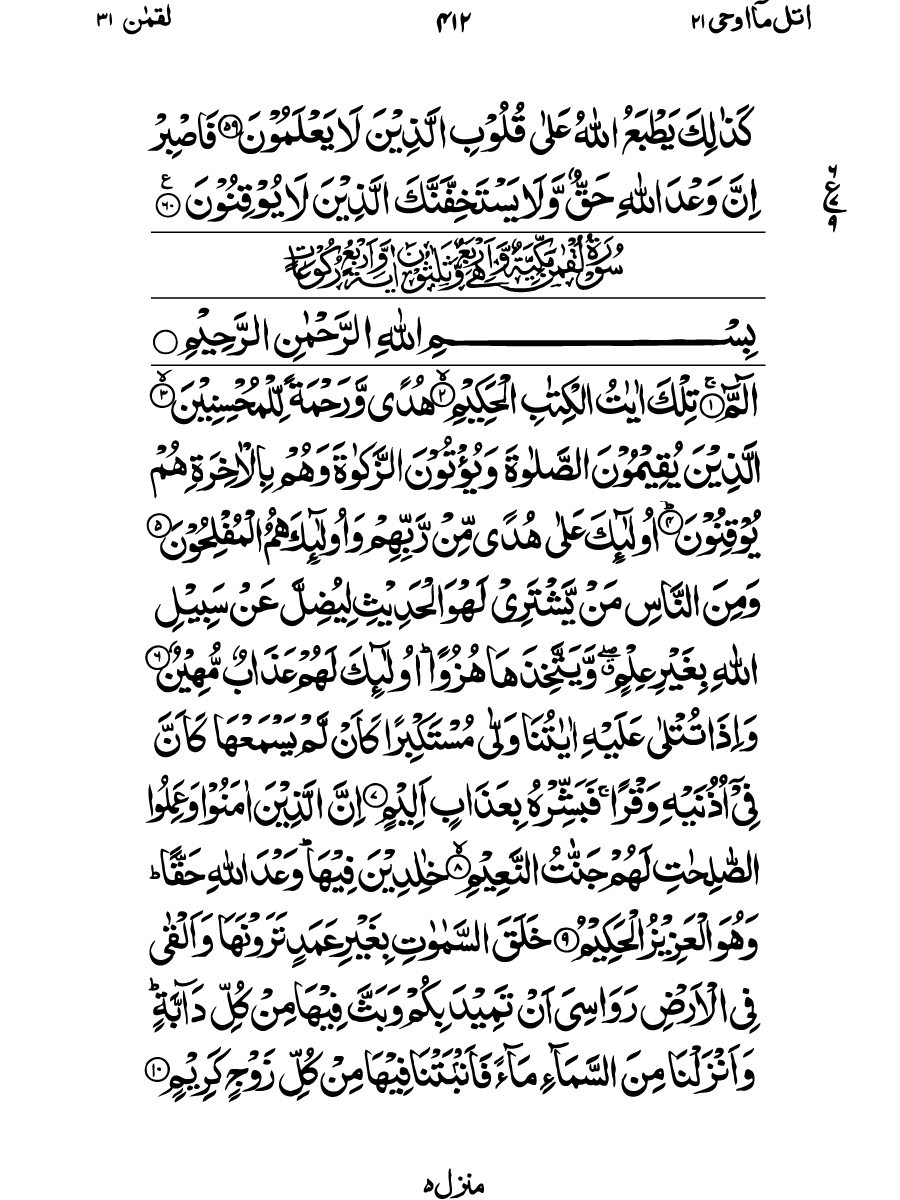 اتل مآ اوحی ۲۱
۴۱۲
لقمٰن ۳۱
كَذٰلِكَ يَطْبَعُ اللّٰهُ عَلٰى قُلُوْبِ الَّذِيْنَ لَا يَعْلَمُوْنَ ﴿۵۹﴾ فَاصْبِرْ
اِنَّ وَعْدَ اللّٰهِ حَقٌّ وَّلَا يَسْتَخِفَّنَّكَ الَّذِيْنَ لَا يُوْقِنُوْنَ ﴿۶۰﴾ ع
۶
ع
۷
۹
سُوْرَةُ لُقْمٰنَ مَكِّيَّةٌ وَّهِيَ اَرْبَعٌ وَّثَلٰثُوْنَ اٰيَةً وَّاَرْبَعُ رُكُوْعَاتٍ
بِسْمِ اللّٰهِ الرَّحْمٰنِ الرَّحِيْمِ ○
الٓمّٓ ﴿۱﴾ۚ تِلْكَ اٰيٰتُ الْكِتٰبِ الْحَكِيْمِ ﴿۲﴾ۙ هُدًى وَّرَحْمَةً لِّلْمُحْسِنِيْنَ ﴿۳﴾ۙ
الَّذِيْنَ يُقِيْمُوْنَ الصَّلٰوةَ وَيُؤْتُوْنَ الزَّكٰوةَ وَهُمْ بِالْاٰخِرَةِ هُمْ
يُوْقِنُوْنَ ﴿۴﴾ؕ اُولٰٓئِكَ عَلٰى هُدًى مِّنْ رَّبِّهِمْ وَاُولٰٓئِكَ هُمُ الْمُفْلِحُوْنَ ﴿۵﴾
وَمِنَ النَّاسِ مَنْ يَّشْتَرِيْ لَهْوَ الْحَدِيْثِ لِيُضِلَّ عَنْ سَبِيْلِ
اللّٰهِ بِغَيْرِ عِلْمٍ ۖق وَّيَتَّخِذَهَا هُزُوًا ؕ اُولٰٓئِكَ لَهُمْ عَذَابٌ مُّهِيْنٌ ﴿۶﴾
وَاِذَا تُتْلٰى عَلَيْهِ اٰيٰتُنَا وَلّٰى مُسْتَكْبِرًا كَاَنْ لَّمْ يَسْمَعْهَا كَاَنَّ
فِيْۤ اُذُنَيْهِ وَقْرًا ۚ فَبَشِّرْهُ بِعَذَابٍ اَلِيْمٍ ﴿۷﴾ اِنَّ الَّذِيْنَ اٰمَنُوْا وَعَمِلُوا
الصّٰلِحٰتِ لَهُمْ جَنّٰتُ النَّعِيْمِ ﴿۸﴾ۙ خٰلِدِيْنَ فِيْهَا ؕ وَعْدَ اللّٰهِ حَقًّا ؕ
وَهُوَ الْعَزِيْزُ الْحَكِيْمُ ﴿۹﴾ خَلَقَ السَّمٰوٰتِ بِغَيْرِ عَمَدٍ تَرَوْنَهَا وَاَلْقٰى
فِى الْاَرْضِ رَوَاسِىَ اَنْ تَمِيْدَ بِكُمْ وَبَثَّ فِيْهَا مِنْ كُلِّ دَآبَّةٍ ؕ
وَاَنْزَلْنَا مِنَ السَّمَآءِ مَآءً فَاَنْۢبَتْنَا فِيْهَا مِنْ كُلِّ زَوْجٍ كَرِيْمٍ ﴿۱۰﴾
منزل ۵